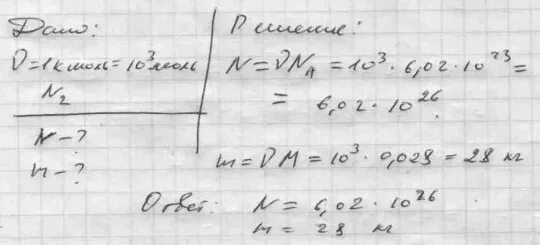 Дано:
ν=1кмоль=10³моль
N₂
N-?
m-?
Решение:
N=νN_A=10³·6,02·10²³=
=6,02·10²⁶
m=νM=10³·0,028=28 кг
Ответ: N=6,02·10²⁶
m=28 кг